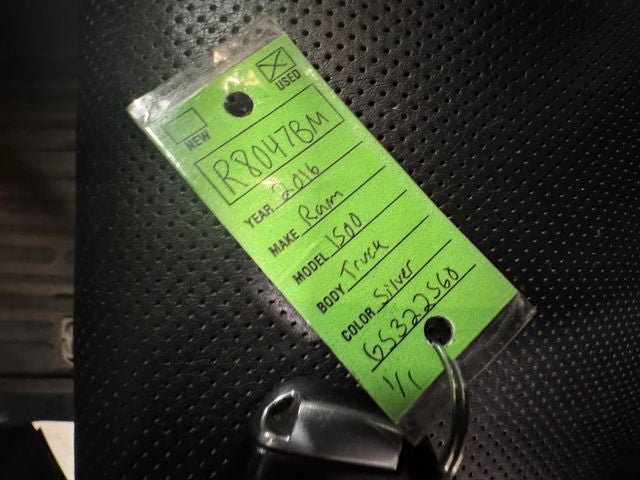 NEW USED
R8047BM
YEAR 2016
MAKE Ram
MODEL 1500
BODY Truck
COLOR Silver
GS322560
1/1